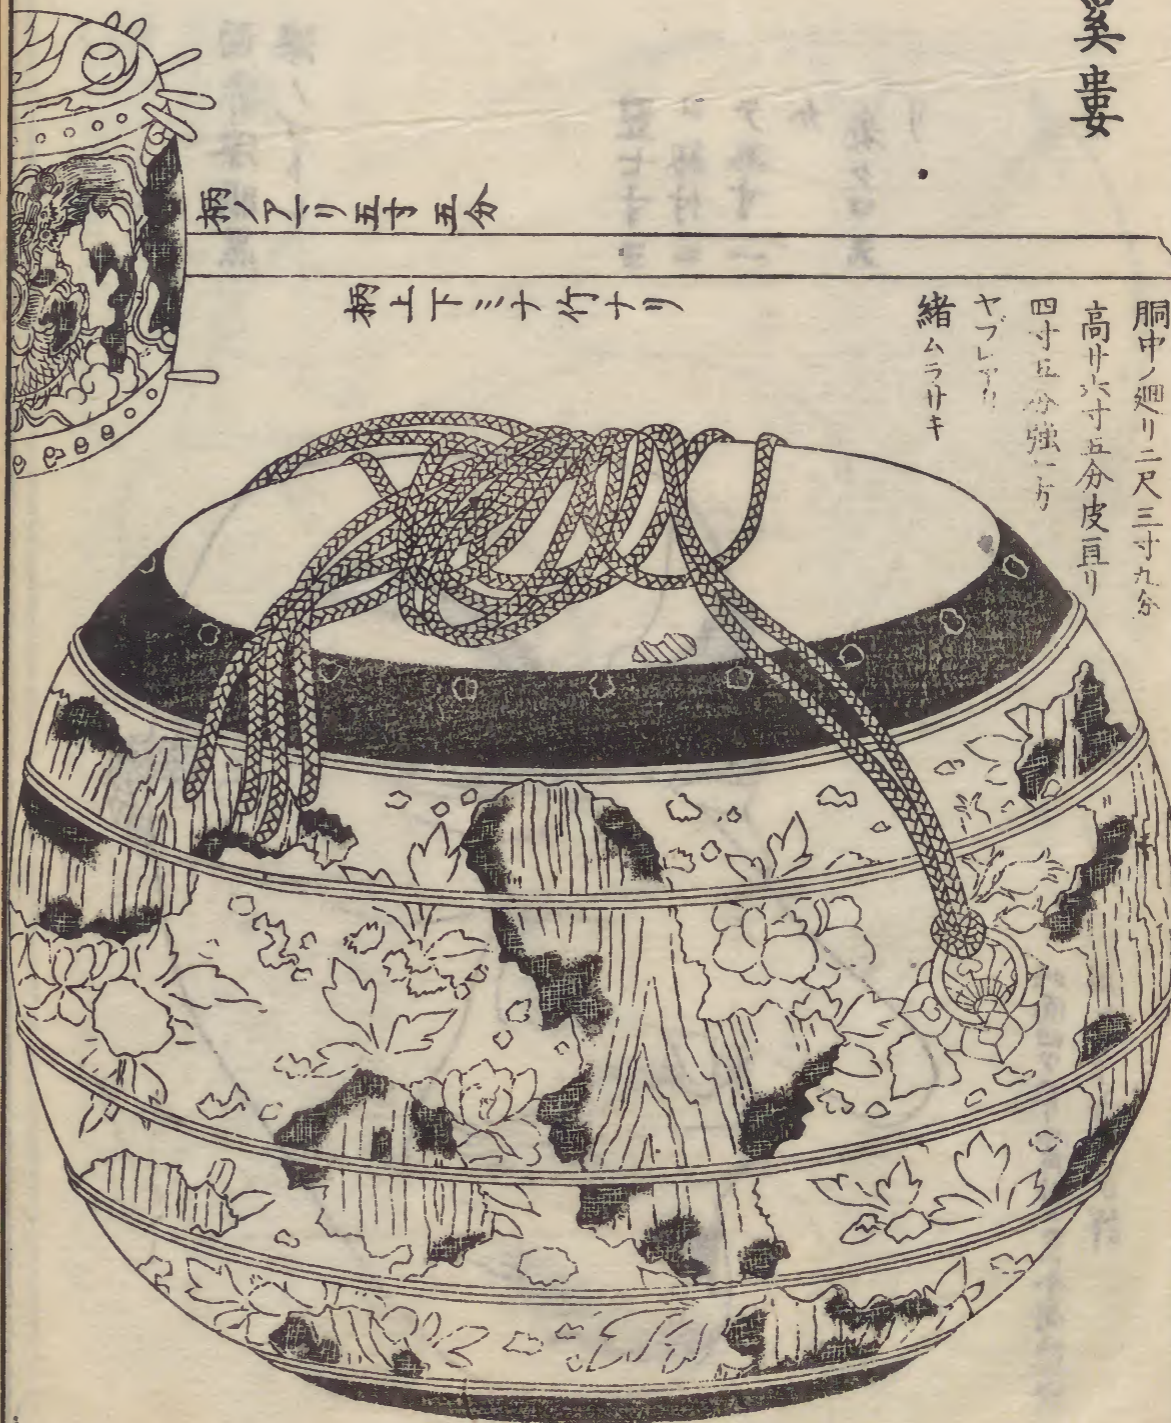 奚婁
胴中ノ廻リ二尺三寸九分
高サ六寸五分皮亘リ
四寸五分強一方
ヤブレアリ
緒ムラサキ
柄ノアマリ五寸五分
柄上下ミナ竹ナリ